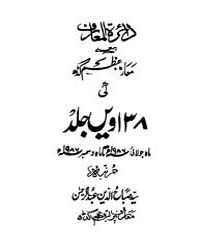 دائرۃ المعارف
معارف اعظم گڑھ
کی
۱۳۸ ویں جلد
ماہ جولائی ۱۹۸۶ء تا ماہ دسمبر ۱۹۸۶ء
مرتبہ
سید صباح الدین عبدالرحمن